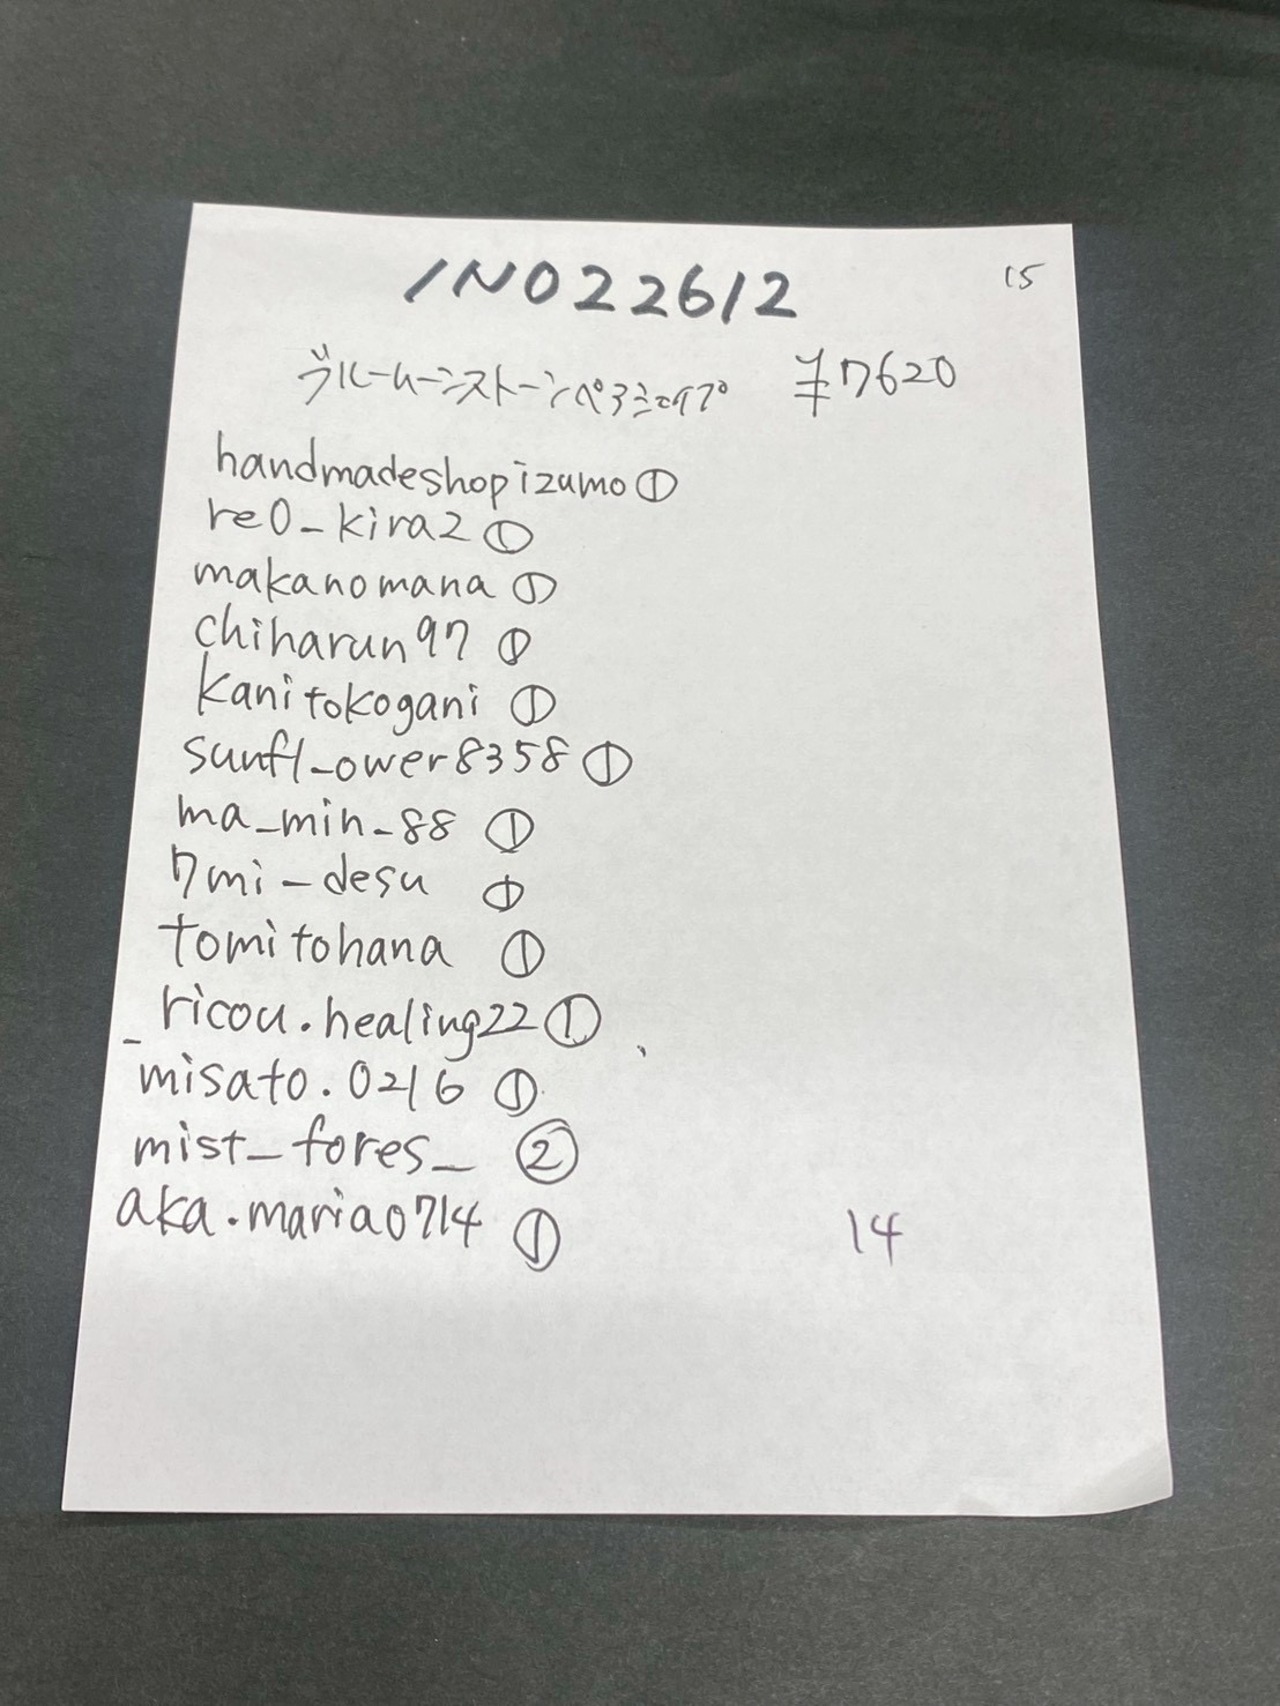 INO22612
15
ブルームーンストーンペアシェイプ ¥7620
handmadeshopizumo①
re0_kira2①
makanomana①
chiharun97①
kanitokogani①
sunfl_ower8358①
ma_min_88①
7mi_desu①
tomitohana①
_ricou.healing22①
misato.0216①
mist_fores_②
aka.maria0714①
14